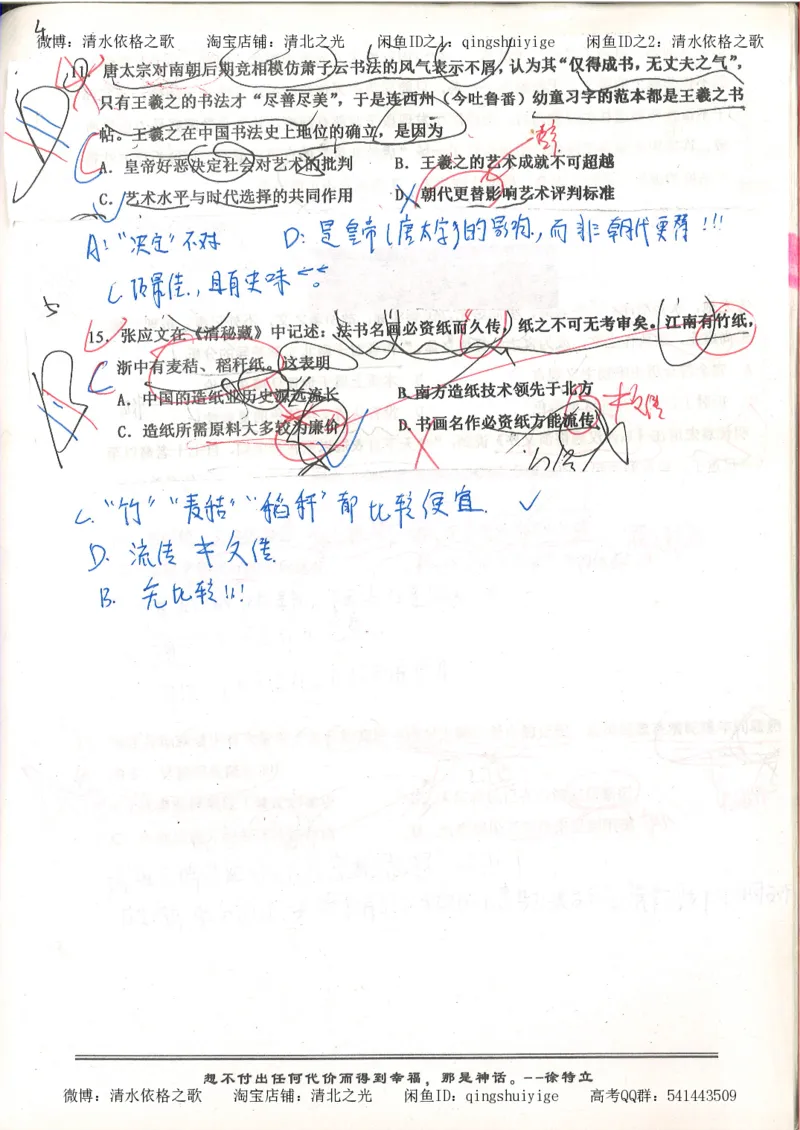 4
微博：清水依格之歌 淘宝店铺：清北之光 闲鱼ID之1：qingshuiyige 闲鱼ID之2：清水依格之歌
11．唐太宗对南朝后期竞相模仿萧子云书法的风气表示不屑，认为其“仅得成书，无丈夫之气”，
只有王羲之的书法才“尽善尽美”，于是连西州（今吐鲁番）幼童习字的范本都是王羲之书
帖。王羲之在中国书法史上地位的确立，是因为
C
A．皇帝好恶决定社会对艺术的批判 B．王羲之的艺术成就不可超越
C．艺术水平与时代选择的共同作用 D．朝代更替影响艺术评判标准
A："决定"不对 D：是皇帝(唐太宗)的影响，而非朝代更替!!!
C项最佳，且有史味
5
15．张应文在《清秘藏》中记述：法书名画必资纸而久传，纸之不可无考审矣。江南有竹纸，
C 浙中有麦秸、稻秆纸。这表明
A．中国的造纸业历史源远流长 B.南方造纸技术领先于北方
C．造纸所需原料大多较为廉价 D.书画名作必资纸方能流传
C．"竹" "麦秸" "稻秆" 都比较便宜. ✓
D. 流传 ≠ 久传
B. 无比较!!!
想不付出任何代价而得到幸福，那是神话。--徐特立
微博：清水依格之歌 淘宝店铺：清北之光 闲鱼ID：qingshuiyige 高考QQ群：541443509